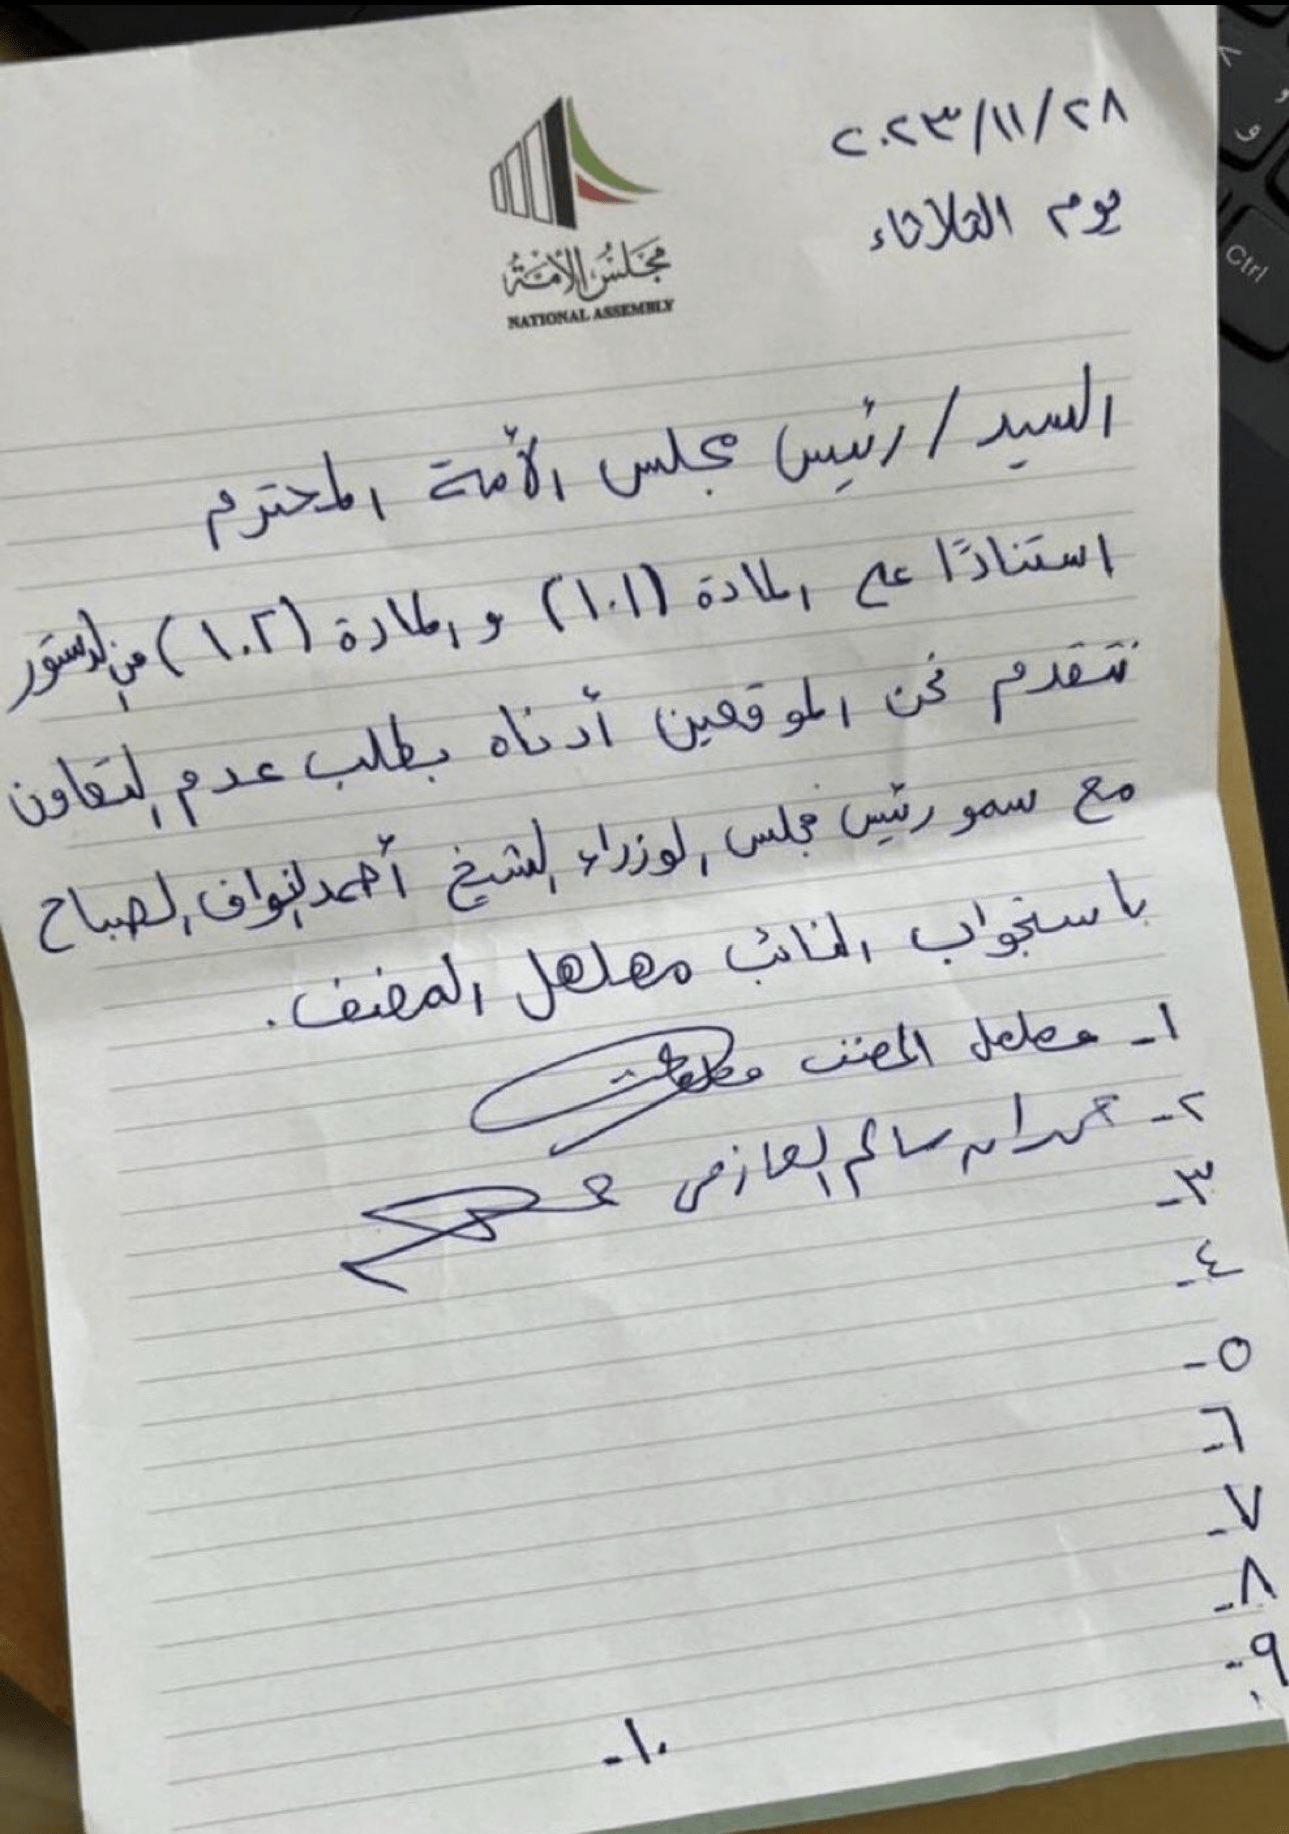 ٢٠٢٣/١١/٢٨
يوم الثلاثاء
مجلس الأمة
NATIONAL ASSEMBLY
السيد / رئيس مجلس الأمة المحترم
استنادًا على المادة (١٠١) والمادة (١٠٢) من الدستور
نتقدم نحن الموقعين أدناه بطلب عدم التعاون
مع سمو رئيس مجلس الوزراء الشيخ أحمد النواف الصباح
باستجواب النائب مهلهل المضف.
١- مهلهل المضف
٢- حمدان سالم العازمي
٣-
٤-
٥-
٦-
٧-
٨-
٩-
١٠-
Ctrl
و